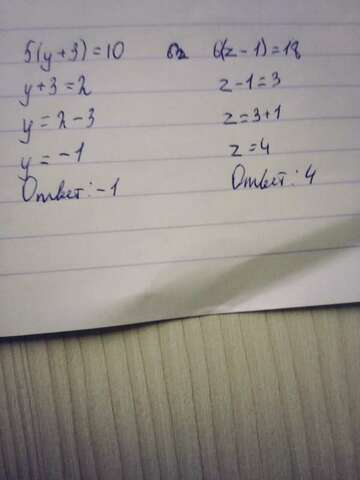 5(y+3)=10
y+3=2
y=2-3
y=-1
Ответ:-1
6(z-1)=18
z-1=3
z=3+1
z=4
Ответ: 4